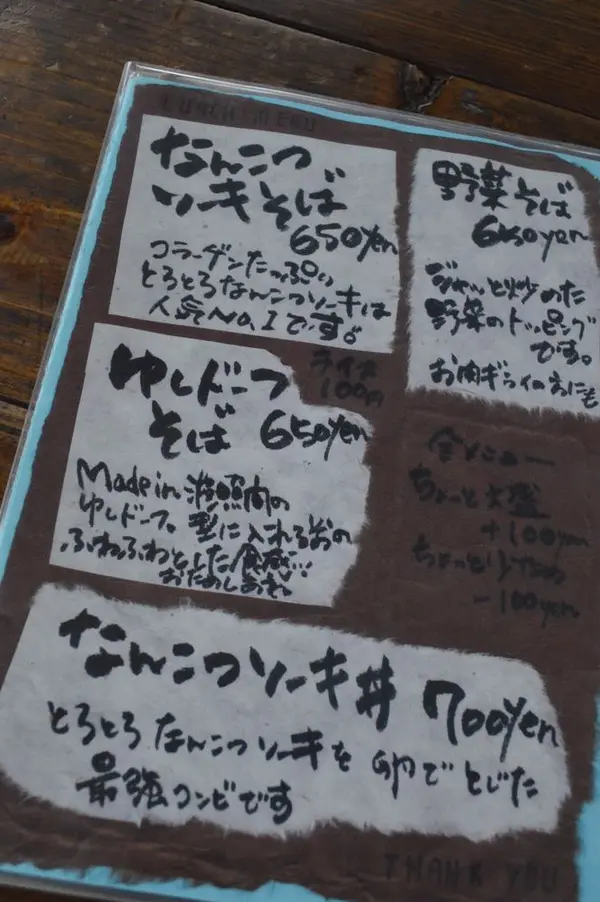 LUNCH MENU
なんこつ
ソーキそば
650yen
コラーゲンたっぷり
とろとろなんこつソーキは
人気No,1です。
野菜そば
650yen
ジャッと炒めた
野菜のトッピング
です。
お肉ギライの方にも
ライス
100円
ゆしドーフ
そば 650yen
Made in 波照間の
ゆしドーフ。型に入れる前の
ふわふわとした食感…
おためしあれ。
全メニュー
ちょっと大盛
+100yen
ちょっと少なめ
-100yen
なんこつソーキ丼 700yen
とろとろなんこつソーキを卵でとじた
最強コンビです
THANK YOU